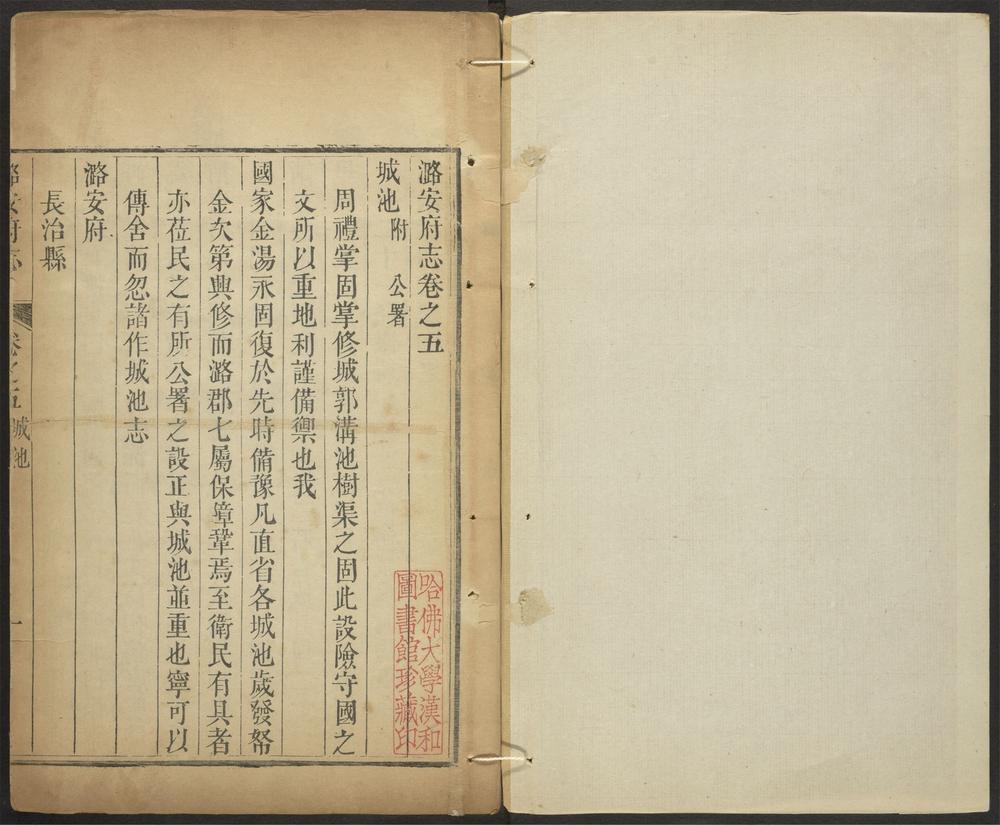 潞安府志卷之五
城池 附 公署
周禮掌固掌修城郭溝池樹渠之固此設險守國之
文所以重地利謹備禦也我
國家金湯永固復於先時備豫凡直省各城池歲發帑
金次第興修而潞郡七屬保障鞏焉至衛民有具者
亦莅民之有所公署之設正與城池並重也寧可以
傳舍而忽諸作城池志
潞安府
長治縣
潞安府志 卷之五 城池 一
哈佛大學漢和
圖書館珍藏印